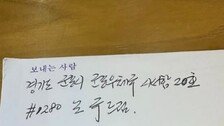 보내는 사람
경기도 군포시 군포우체국 사서함 20호
#1280 조 주드림.